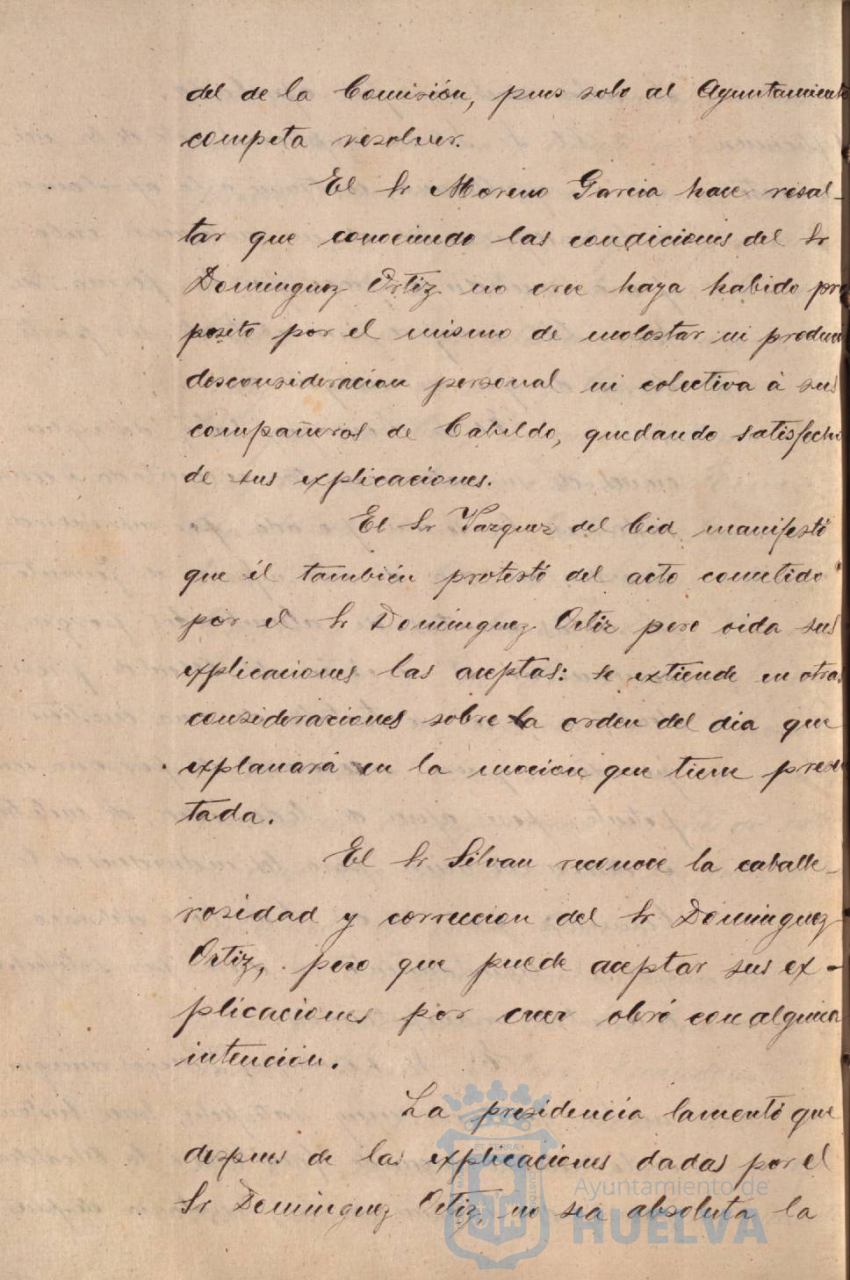 del de la Comisión, pues solo al Ayuntamiento
competa resolver.
El Sr Moreno Garcia hace resal-
tar que conociendo las condiciones del Sr
Dominguez Ortiz no cree haya habido pro
posito por el mismo de molestar ni produci
desconsideracion personal ni colectiva á sus
compañeros de Cabildo, quedando satisfecho
de sus explicaciones.
El Sr Vazquez del Cid manifestó
que él también protestó del acto cometido
por el Sr Dominguez Ortiz pero oida sus
explicaciones las aceptas: se extiende en otras
consideraciones sobre la orden del dia que
explanará en la moción que tiene presen
tada.
El Sr Silvan reconoce la caballe-
rosidad y correccion del Sr Dominguez
Ortiz, pero que puede aceptar sus ex-
plicaciones por creer obró con alguna
intención.
La presidencia lamentó que
despues de las explicaciones dadas por el
Sr Dominguez Ortiz, no sea absoluta la
Ayuntamiento de
HUELVA